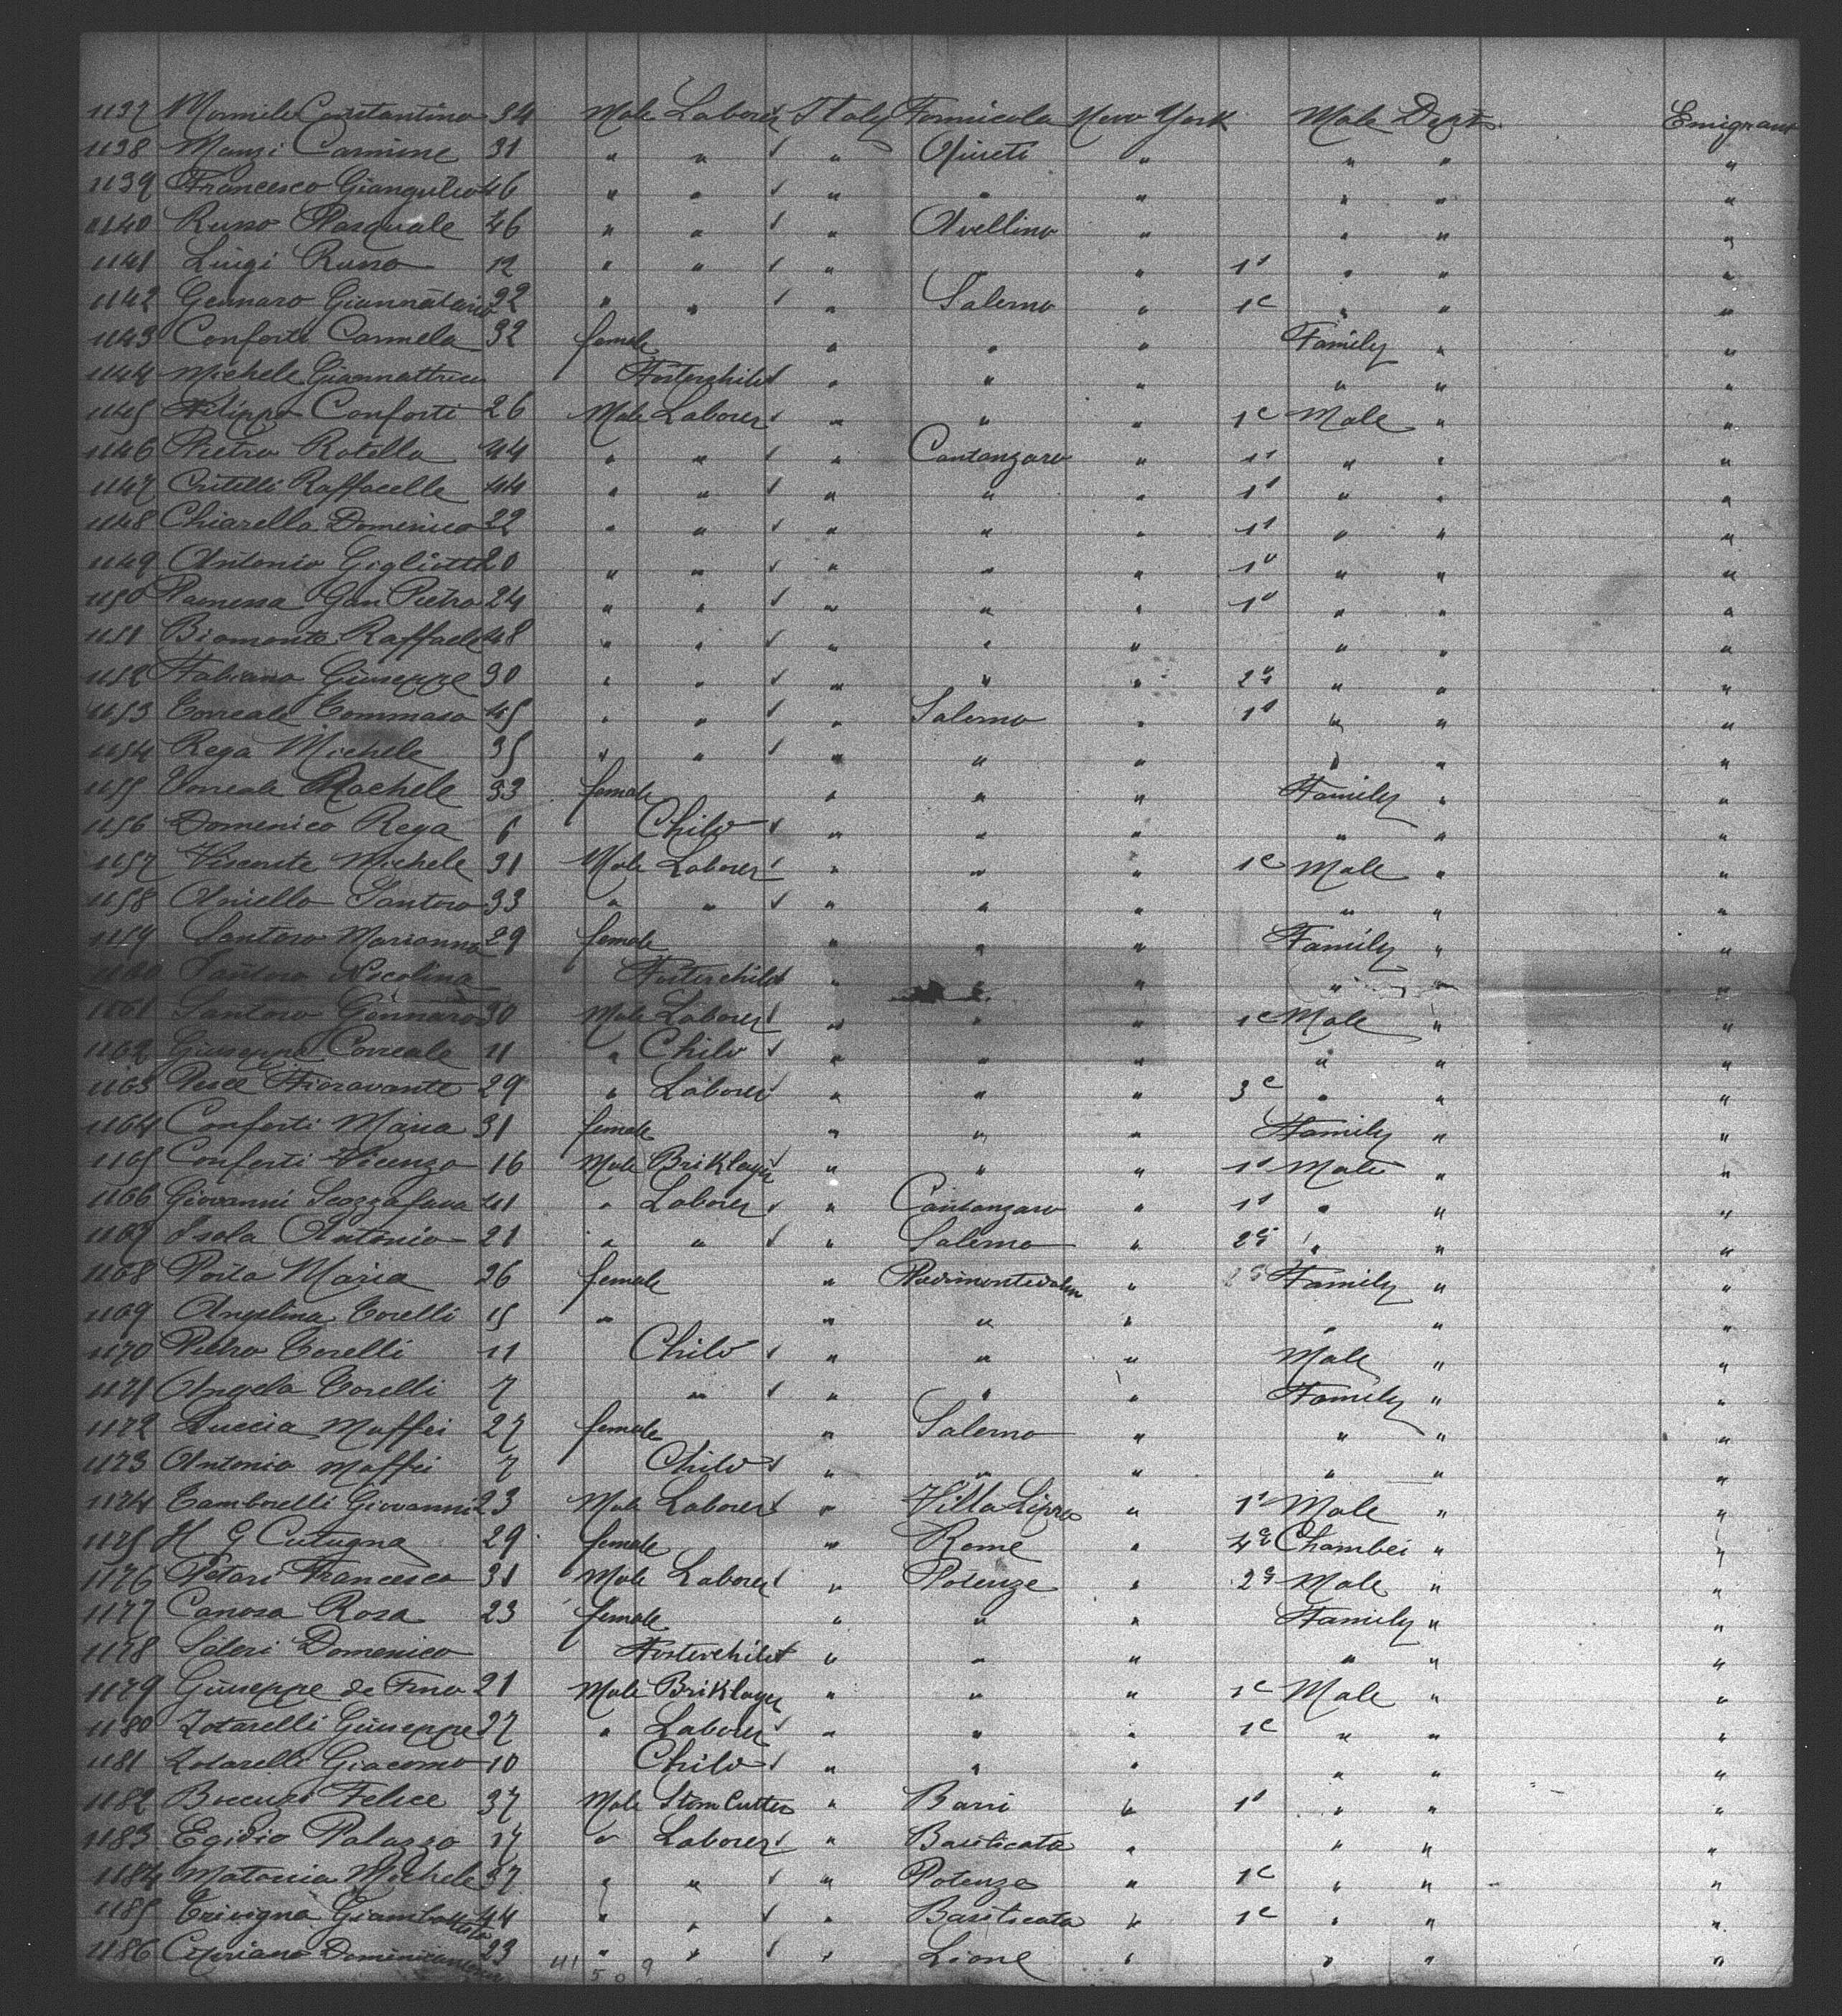 1137 Momile Constantino 34 Male Laborer Italy Formicola New York Male Depts. Emigrant
1138 Manzi Carmine 31 " " ✓ " Opireti " " " "
1139 Francesco Giangulio 46 " " ✓ " " " " " "
1140 Russo Pasquale 46 " " ✓ " Avellino " " " "
1141 Luigi Russo 12 " " ✓ " " 1s " " "
1142 Gennaro Giannattasio 32 " " ✓ " Salerno " 1c " " "
1143 Conforti Carmela 32 female " " " Family " "
1144 Michele Giannattasio Fosterchild ✓ " " " " " "
1145 Filippo Conforti 26 Male Laborer ✓ " " " 1c Male " "
1146 Pietro Rotella 44 " " ✓ " Cantanzaro " 1s " " "
1147 Critelli Raffaelle 44 " " ✓ " " " 1s " " "
1148 Chiarella Domenico 22 " " ✓ " " " 1s " " "
1149 Antonio Gigliotti 20 " " ✓ " " " 1s " " "
1150 Gan Pietro 24 " " ✓ " " " 1s " " "
1151 Biamonte Raffaele 48 " " ✓ " " " " " "
1152 Fabiano Giuseppe 30 " " ✓ " " " 2s " " "
1153 Correale Tommaso 45 " " ✓ " Salerno " 1s " " "
1154 Rega Michele 35 " " ✓ " " " " " "
1155 Correale Rachele 33 female " " " Family " "
1156 Domenico Rega 6 Child ✓ " " " " " "
1157 Visconte Michele 31 Male Laborer ✓ " " " 1c Male " "
1158 Aniello Santoro 33 " " ✓ " " " " " "
1159 Santoro Marianna 29 female " " " Family " "
1160 Santoro Nicolina Fosterchild " " " " " "
1161 Santoro Gennaro 30 Male Laborer ✓ " " " 1c Male " "
1162 Giuseppe Correale 11 " Child ✓ " " " " " "
1163 Pesce Fioravante 29 " Laborer ✓ " " " 3c " " "
1164 Conforti Maria 31 female " " " Family " "
1165 Conforti Vicenzo 16 Male Briklayer " " " 1s Male " "
1166 Giovanni Scozzafava 41 " Laborer ✓ " Cantanzaro " 1s " " "
1167 Isola Antonio 21 " " ✓ " Salerno " 2s " " "
1168 Porta Maria 36 female " " Family " "
1169 Angelina Corelli 15 " " " " " " "
1170 Pietro Corelli 11 Child ✓ " " " Male " "
1171 Angela Corelli 7 " ✓ " " " Family " "
1172 Luccia Maffei 27 female " Salerno " " " "
1173 Antonio Maffei 7 Child ✓ " " " " " "
1174 Tamborelli Giovanni 23 Male Laborer ✓ " Villa " 1s Male " "
1175 H G Cutugna 29 female " Rome " 4s Chambei " "
1176 Potari Francesco 31 Male Laborer ✓ " Potenze " 2s Male " "
1177 Canosa Rosa 23 female " " " Family " "
1178 Domenico Fosterchild ✓ " " " " " "
1179 Giuseppe de Fino 21 Male Briklayer " " " 1c Male " "
1180 Lotarelli Giuseppe 37 " Laborer ✓ " " " 1c " " "
1181 Lotarelli Giacomo 10 Child ✓ " " " " " "
1182 Boccuzi Felice 37 Male Stom Cutter " Barri " 1s " " "
1183 Egidio Palazzo 17 " Laborer ✓ " Basilicata " " " "
1184 Michele 37 " " ✓ " Potenza " 1c " " "
1185 Trivigna Giambattista 44 " " ✓ " Basilicata " 1c " " "
1186 Cipriano 23 " " ✓ " Lione " " " "